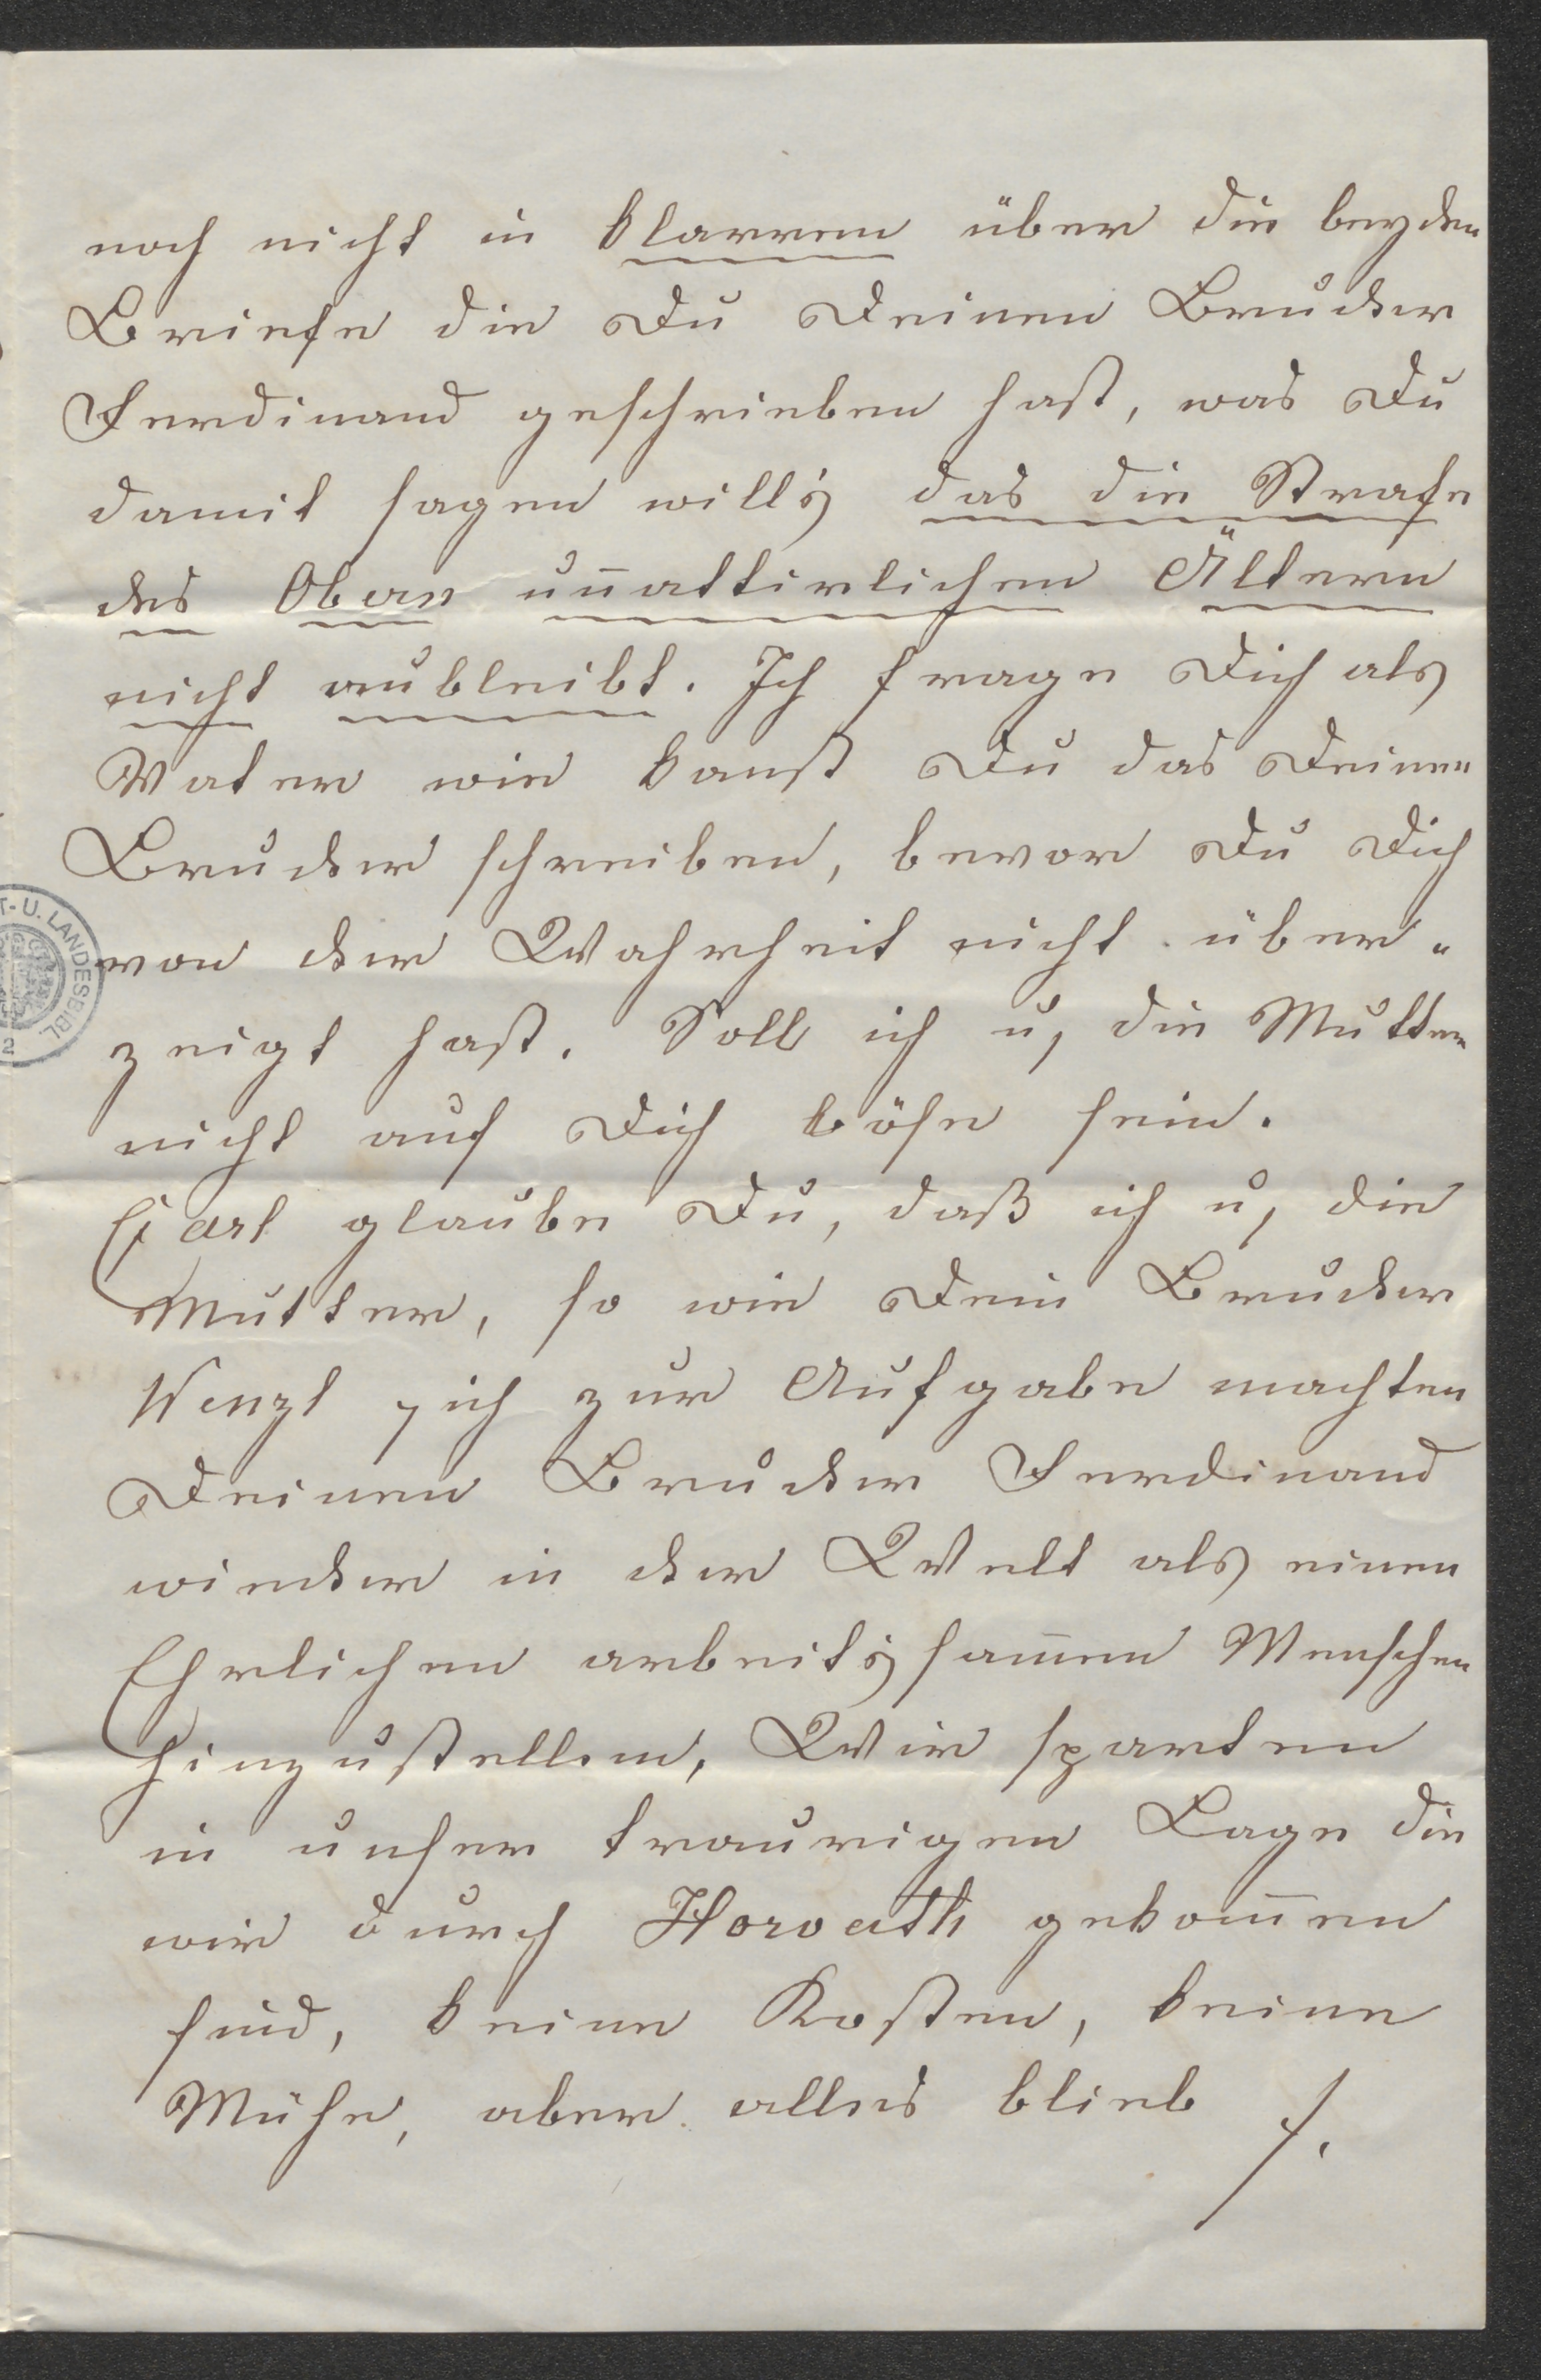 noch nicht in klarren über die beyden
Briefe die Du Deinen Bruder
Ferdinand geschrieben hast, was Du
damit sagen wills das die Strafe
des Oban unnattirlichen Ältern
nicht aubleibt. Ich frage Dich als
Vater wie kanst Du das Deinen
Bruder schreiben, bevor Du Dich
von der Wahrheit nicht über„
zeigt hast. Soll ich u, die Mutter
nicht auf Dich böse sein.
Carl glaube Du, daß ich u, die
Mutter, so wie Dein Bruder
Wenzl sich zur Aufgabe machten
Deinen Bruder Ferdinand
wieder in der Welt als einen
Ehrlichen arbeitssam̄en Menschen
hinzustellen, Wir sparten
in unser traurigen Lage die
wir durch Horvath gekom̄en
sind, keine Kosten, keine
Mühe, aber alles blieb /.
T- U. LANDESBIBL.
2